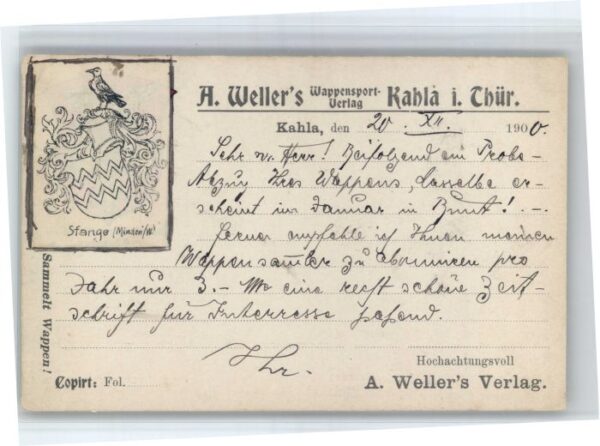 A. Weller's Wappensport-Verlag Kahla i. Thür.
Kahla, den 20. XII. 1900.
Sehr w. Herr! Beifolgend ein Probe-
Abzug Ihres Wappens, dasselbe er-
scheint im Januar in Bunt! . —
Ferner empfehle ich Ihnen meinen
Wappensamler zu abonniren pro
Jahr nur 3.– Mk eine recht schöne Zeit-
schrift für Interresse
Ihr.
Hochachtungsvoll
A. Weller's Verlag.
Stange (Minden/W.)
Sammelt Wappen!
Copirt: Fol.